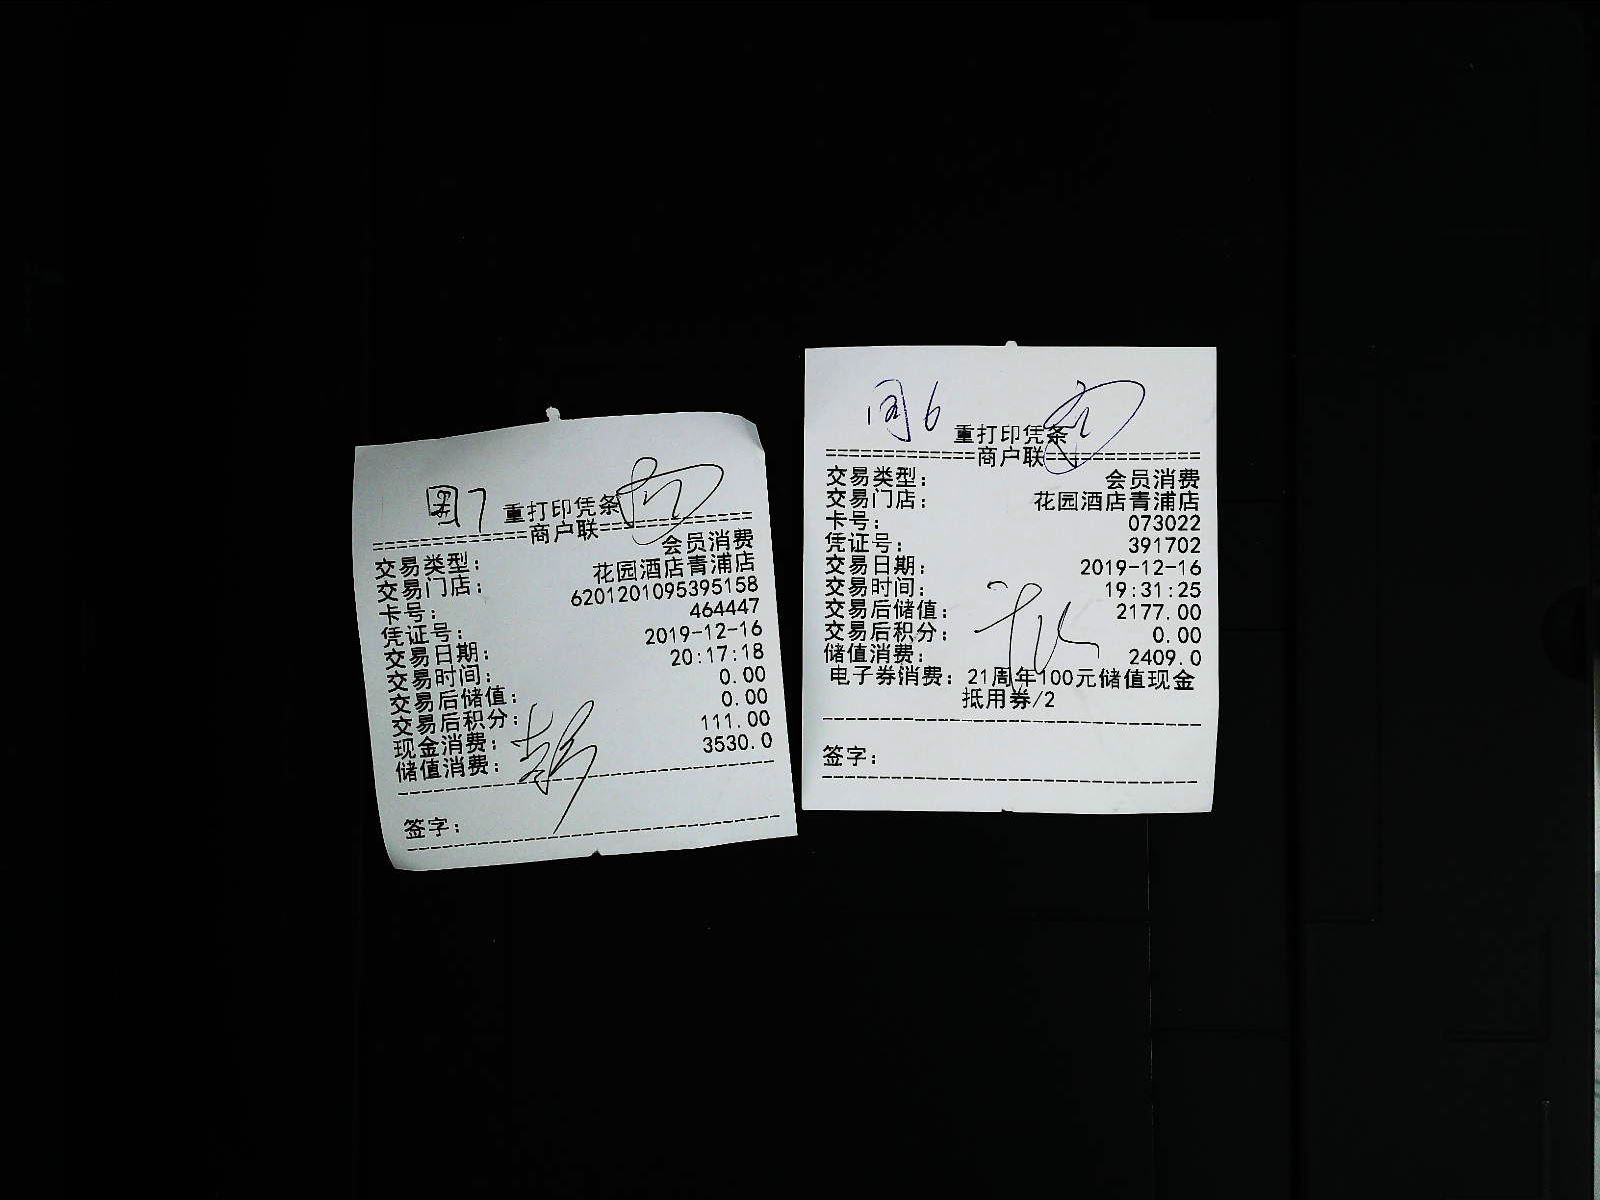 7
重打印凭条
================商户联================
交易类型: 会员消费
交易门店: 花园酒店青浦店
卡号: 6201201095395158
凭证号: 464447
交易日期: 2019-12-16
交易时间: 20:17:18
交易后储值: 0.00
交易后积分: 0.00
现金消费: 111.00
储值消费: 3530.0
签字:
6
重打印凭条
================商户联================
交易类型: 会员消费
交易门店: 花园酒店青浦店
卡号: 073022
凭证号: 391702
交易日期: 2019-12-16
交易时间: 19:31:25
交易后储值: 2177.00
交易后积分: 0.00
储值消费: 2409.0
电子券消费: 21周年100元储值现金
抵用券/2
签字: